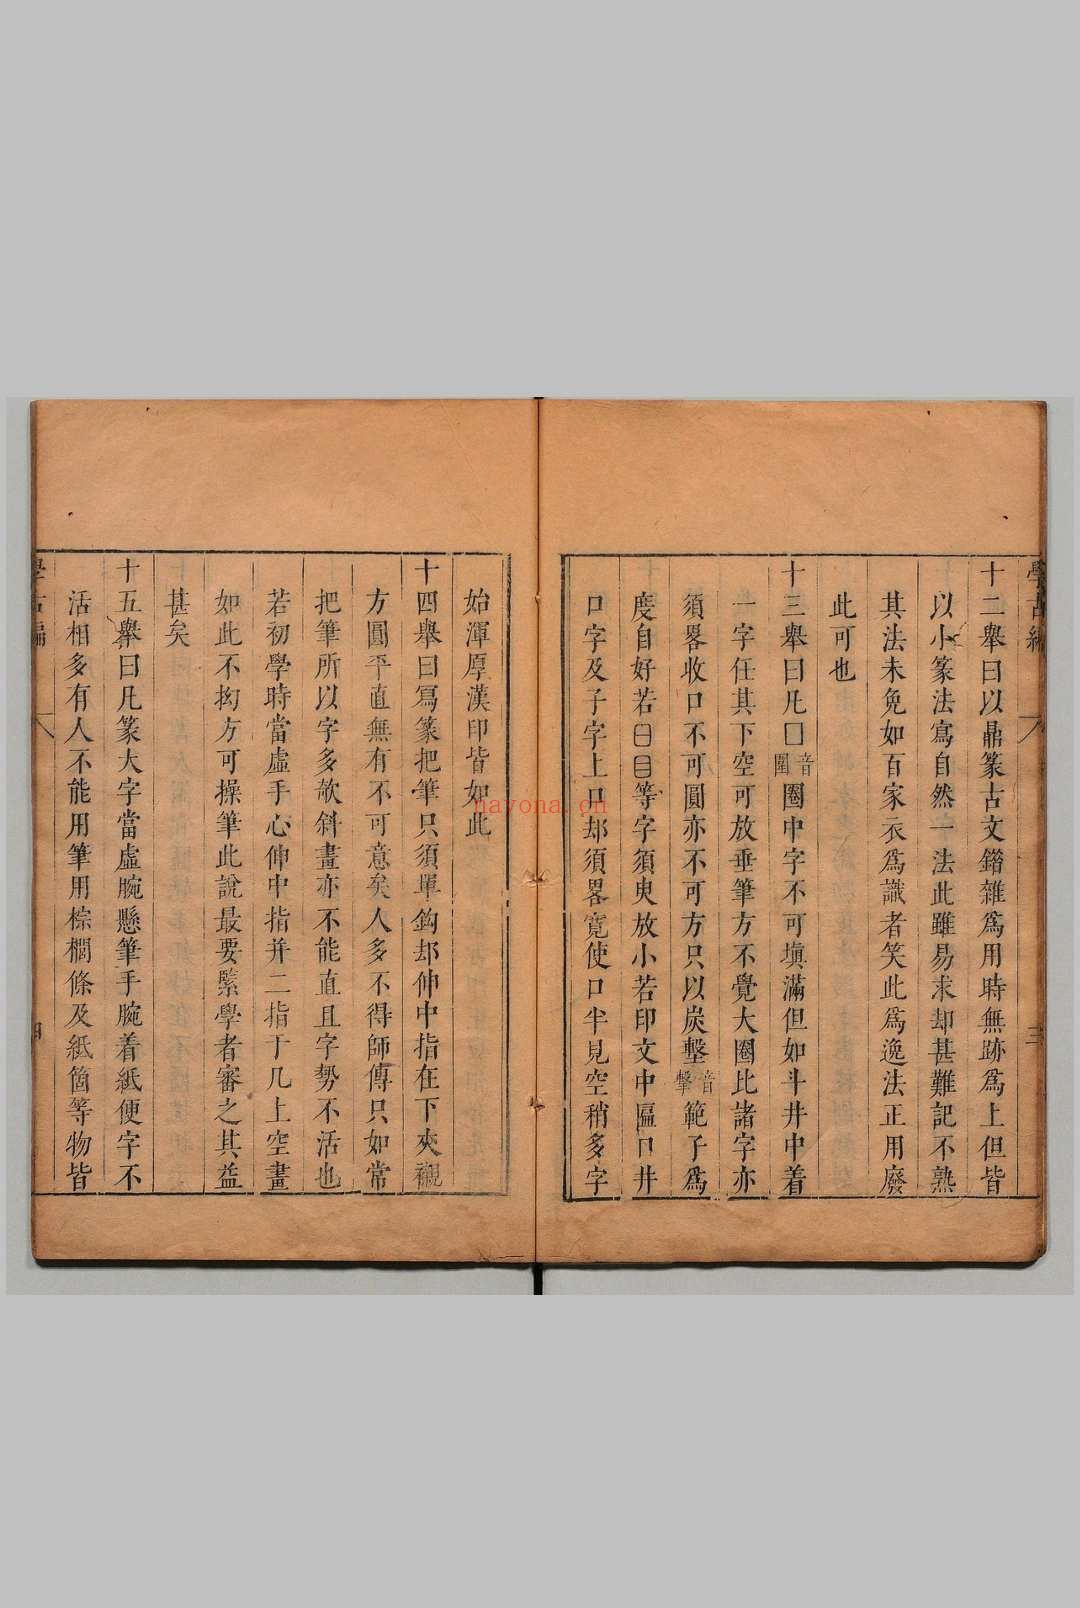 學古編
三
十二舉曰以鼎篆古文錯雜爲用時無跡爲上但皆
以小篆法寫自然一法此雖易求却甚難記不熟
其法未免如百家衣爲識者笑此爲逸法正用廢
此可也
十三舉曰凡囗音圍圈中字不可塡滿但如斗井中着
一字任其下空可放垂筆方不覺大圈比諸字亦
須畧收口不可圓亦不可方只以炭墼音擊範子爲
度自好若日目等字須更放小若印文中匾口井
口字及子字上口却須畧寛使口半見空稍多字
始渾厚漢印皆如此
十四舉曰寫篆把筆只須單鈎却伸中指在下夾襯
方圓平直無有不可意矣人多不得師傳只如常
把筆所以字多欹斜畫亦不能直且字勢不活也
若初學時當虛手心伸中指并二指于几上空畫
如此不拘方可操筆此說最要緊學者審之其益
甚矣
十五舉曰凡篆大字當虛腕懸筆手腕着紙便字不
活相多有人不能用筆用棕櫚條及紙筒等物皆
學古編
四
nayona.cn